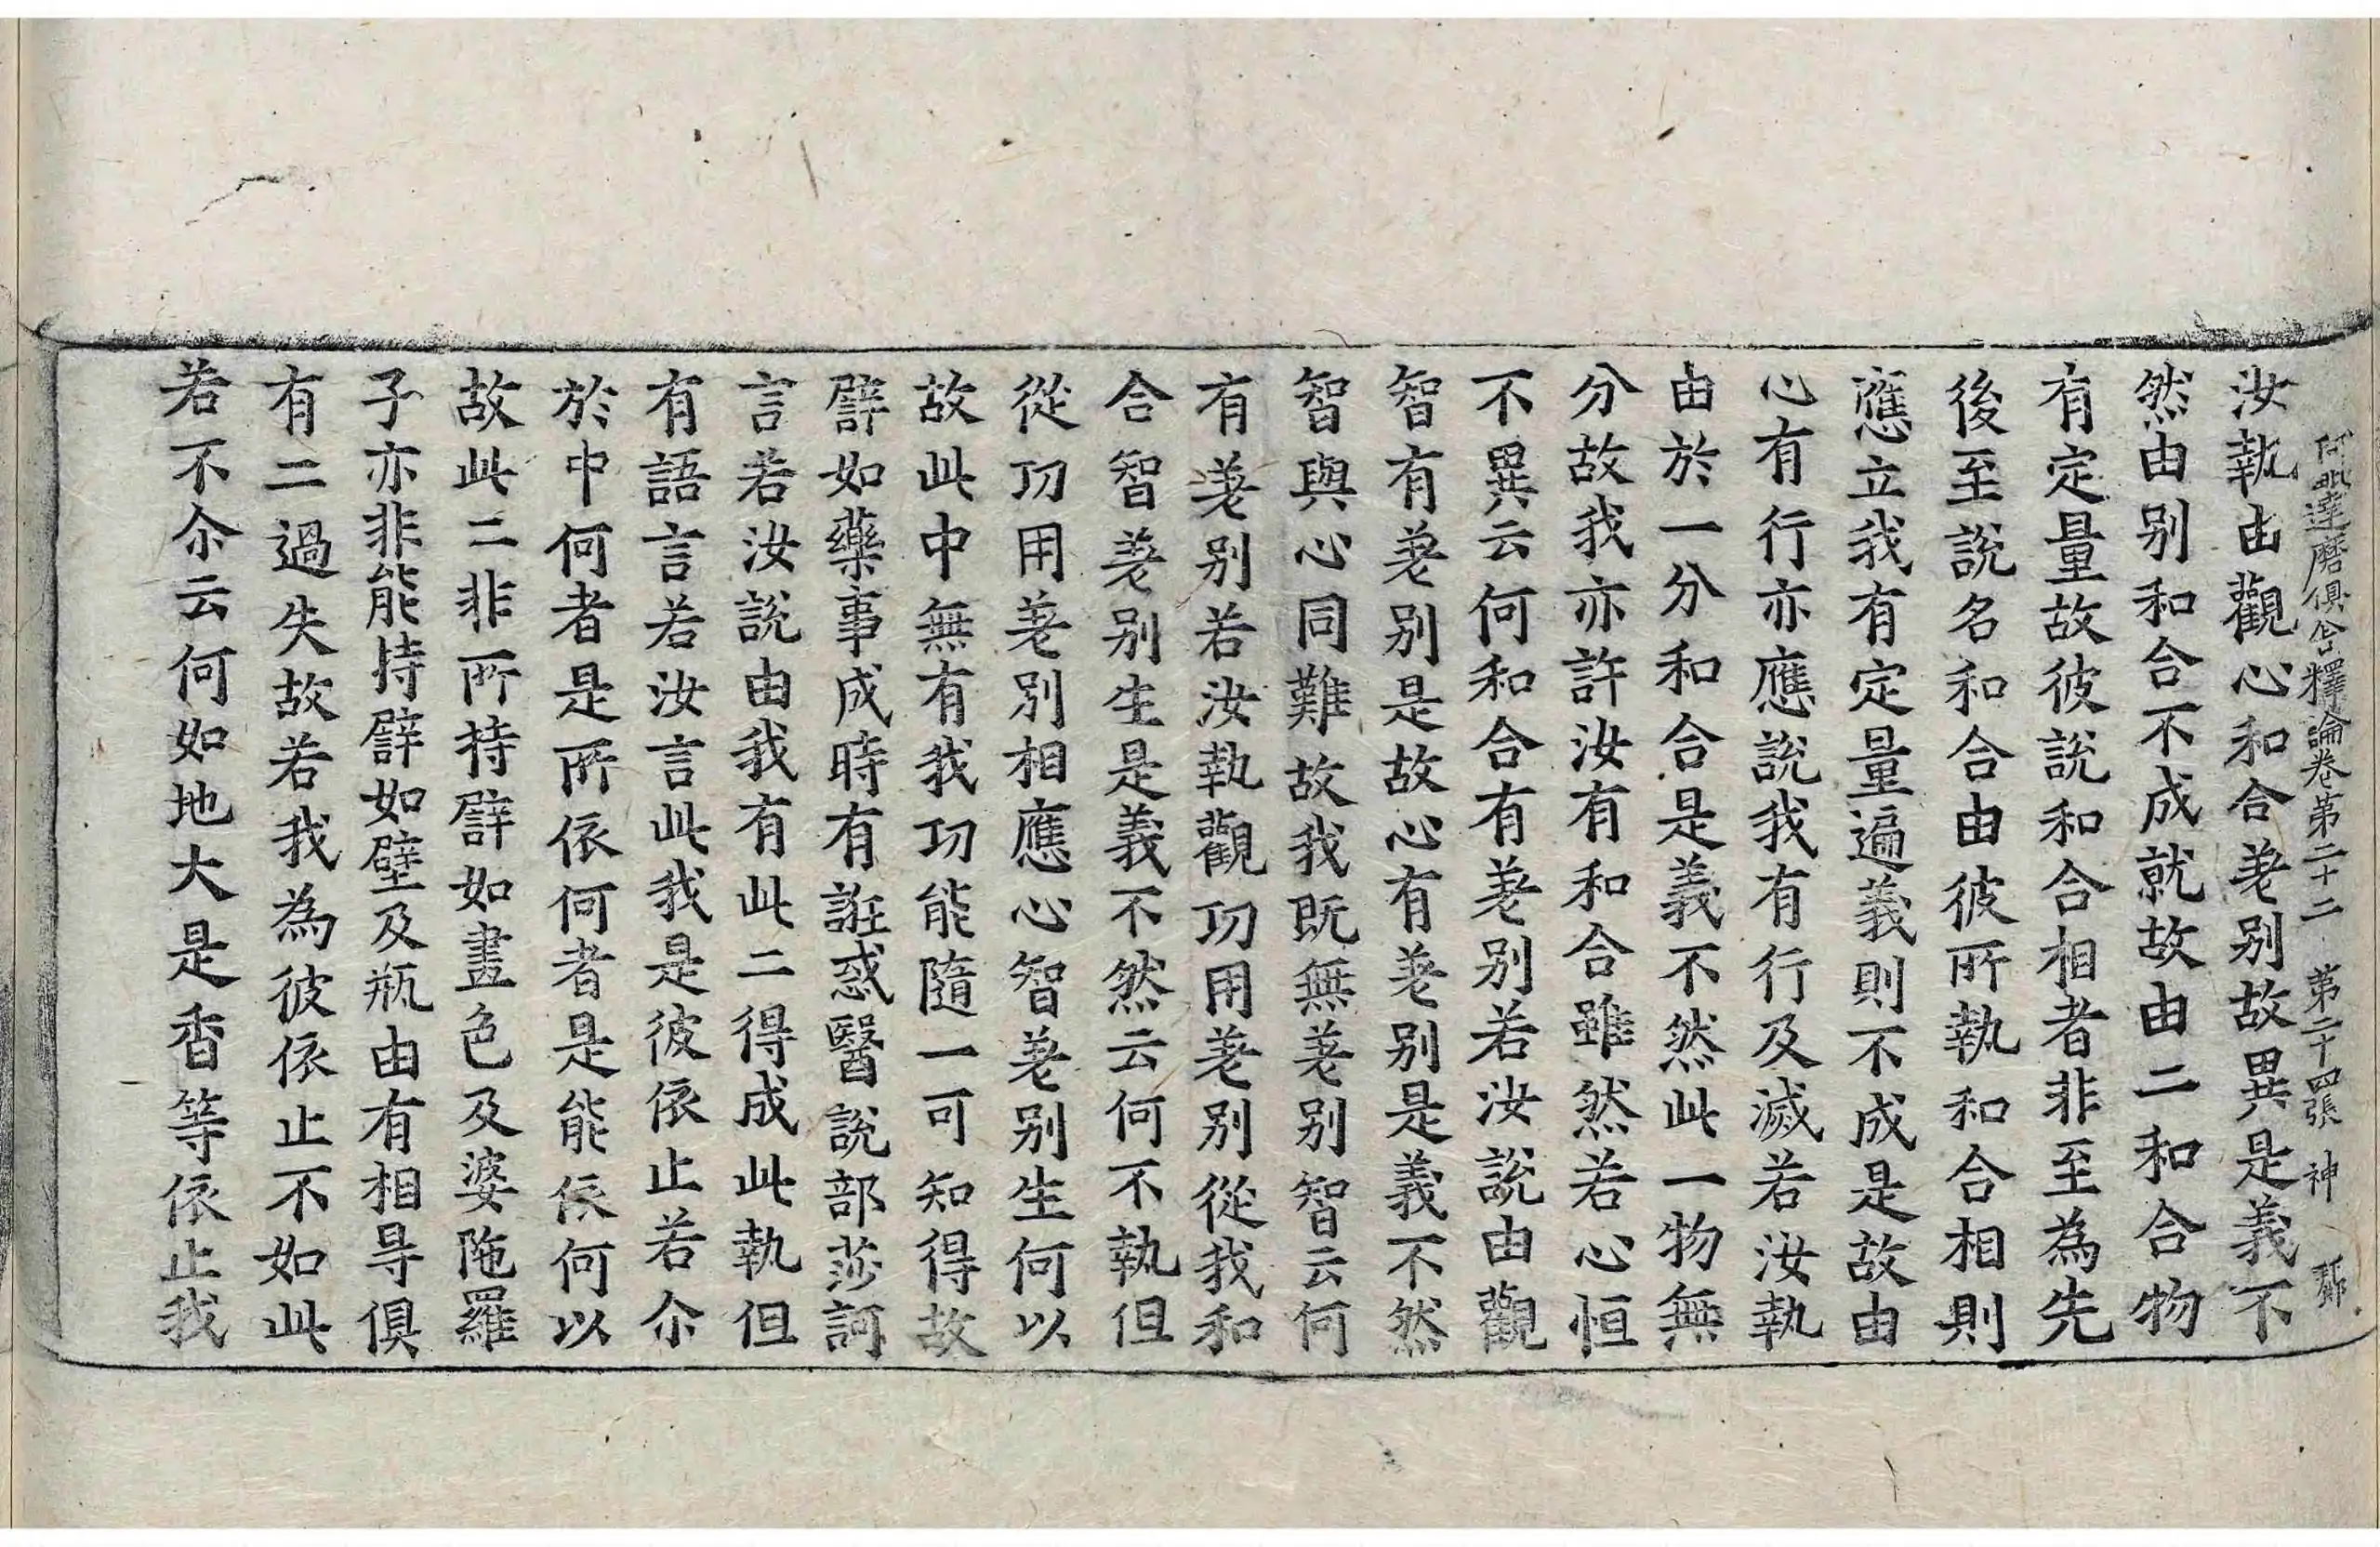 阿毗達磨俱舍釋論卷第二十二 第二十四張 神
汝執由觀心和合差別故異是義不
然由別和合不成就故由二和合物
有定量故彼說和合相者非至為先
後至說名和合由彼所執和合相則
應立我有定量遍義則不成是故由
心有行亦應說我有行及滅若汝執
由於一分和合是義不然此一物無
分故我亦許汝有和合雖然若心恒
不異云何和合有差別若汝說由觀
智有差別是故心有差別是義不然
智與心同難故我既無差別智云何
有差別若汝執觀功用差別從我和
合智差別生是義不然云何不執但
從功用差別相應心智差別生何以
故此中無有我功能隨一可知得故
譬如藥事成時有誑惑醫說部莎訶
言若汝說由我有此二得成此執但
有語言若汝言此我是彼依止若尒
於中何者是所依何者是能依何以
故此二非所持譬如畫色及婆陁羅
子亦非能持譬如壁及瓶由有相㝵俱
有二過失故若我為彼依止不如此
若不尒云何如地大是香等依止我